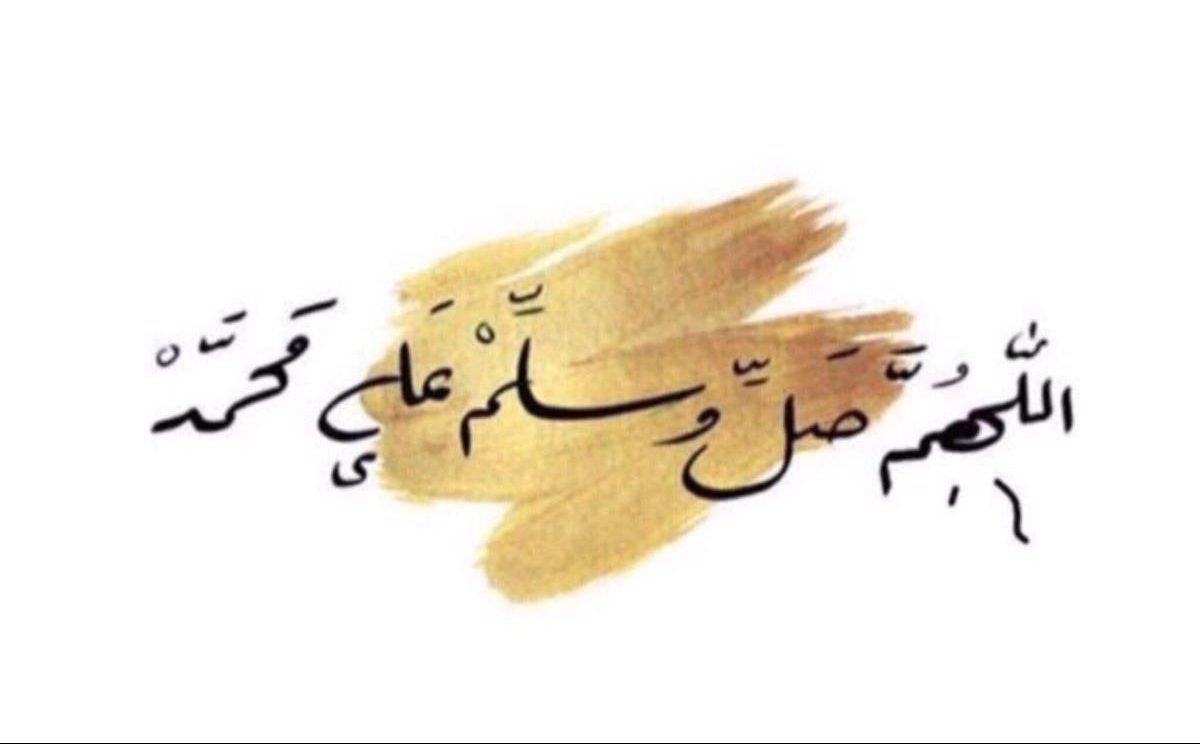 اللَّهُمَّ صَلِّ وسلِّمْ عَلي مُحَمَّدْ